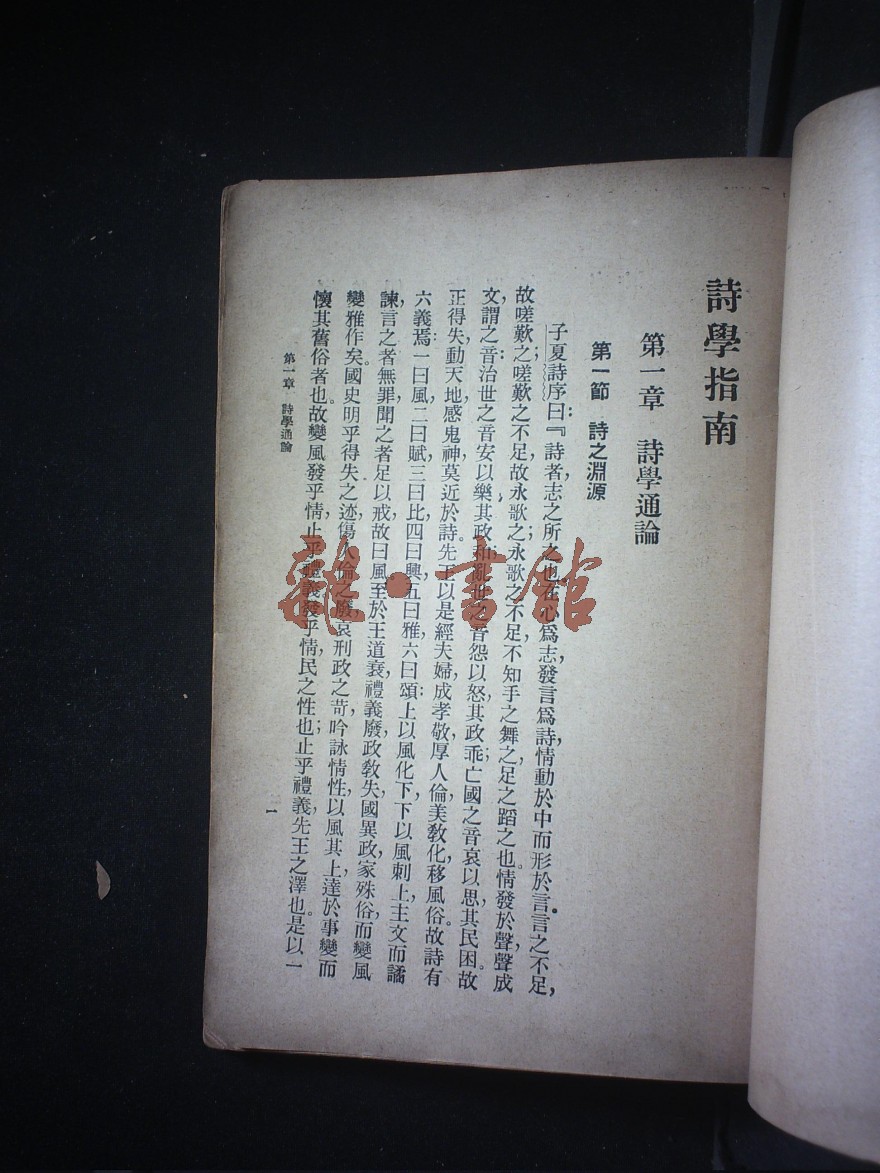 詩學指南
第一章 詩學通論
第一節 詩之淵源
子夏詩序曰:『詩者,志之所之也。在心爲志,發言爲詩,情動於中而形於言。言之不足,
故嗟歎之;嗟歎之不足,故永歌之;永歌之不足,不知手之舞之足之蹈之也。情發於聲,聲成
文,謂之音:治世之音安以樂,其政和;亂世之音怨以怒,其政乖;亡國之音哀以思,其民困。故
正得失,動天地,感鬼神,莫近於詩。先王以是經夫婦,成孝敬,厚人倫,美敎化,移風俗。故詩有
六義焉:一曰風,二曰賦,三曰比,四曰興,五曰雅,六曰頌:上以風化下,下以風刺上,主文而譎
諫,言之者無罪,聞之者足以戒,故曰風。至於王道衰,禮義廢,政敎失,國異政,家殊俗,而變風
變雅作矣。國史明乎得失之迹,傷人倫之廢,哀刑政之苛,吟詠情性,以風其上,達於事變,而
懷其舊俗者也。故變風發乎情,止乎禮義,發乎情,民之性也;止乎禮義,先王之澤也。是以一
第一章 詩學通論
一
雜·書館